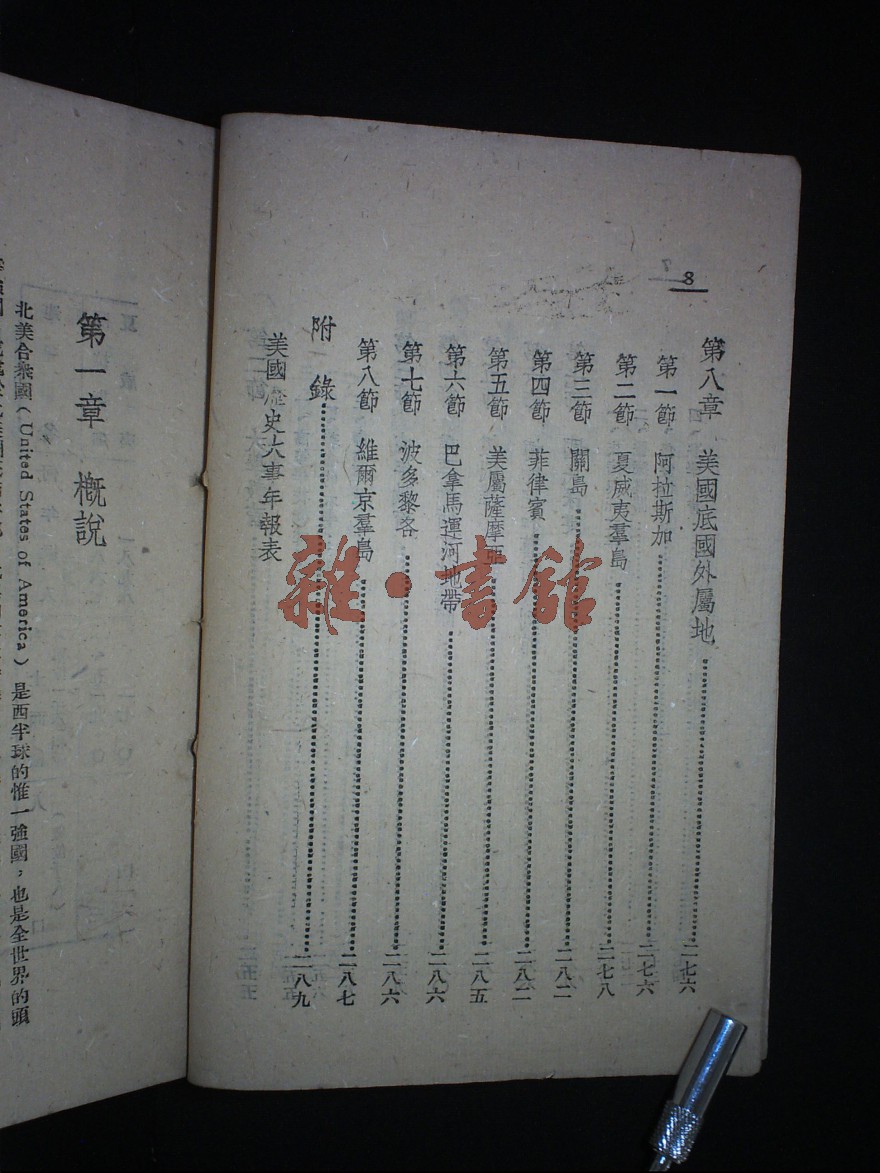 8
第八章 美國底國外屬地 二七六
第一節 阿拉斯加 二七六
第二節 夏威夷羣島 二七八
第三節 關島 二八二
第四節 菲律賓 二八二
第五節 美屬薩摩亞 二八五
第六節 巴拿馬運河地帶 二八六
第七節 波多黎各 二八六
第八節 維爾京羣島 二八七
附錄 二八九
美國歷史大事年報表
雜·書館
第一章 概説
北美合衆國(United States of America)是西半球的惟一強國,也是全世界的頭